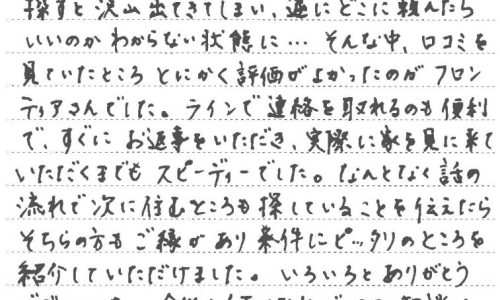 探すと沢山出てきてしまい、逆にどこに頼んだら
いいのかわからない状態に… そんな中、口コミを
見ていたところ とにかく評価がよかったのが フロン
ティアさんでした。ラインで連絡を取れるのも便利
で、すぐに お返事をいただき、実際に家を見に来て
いただくまでも スピーディーでした。なんとなく話の
流れで次に住むところも探していることを伝えたら
そちらの方も ご縁があり 条件にピッタリのところを
紹介していただけました。いろいろとありがとう